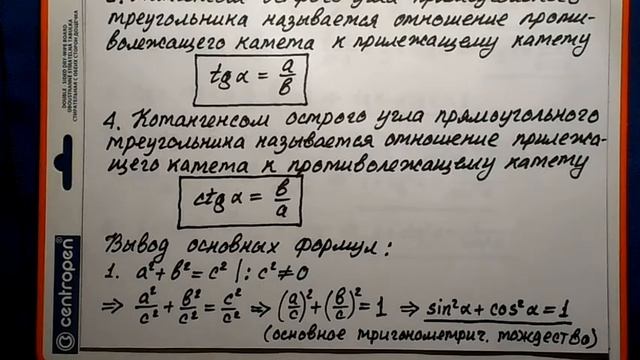 треугольника называется отношение проти-
волежащего катета к прилежащему катету
tg α = a/b
4. Котангенсом острого угла прямоугольного
треугольника называется отношение прилежа-
щего катета к противолежащему катету
ctg α = b/a
Вывод основных формул:
1. a² + b² = c² |: c² ≠ 0
⇒ a²/c² + b²/c² = c²/c² ⇒ (a/c)² + (b/c)² = 1 ⇒ sin²α + cos²α = 1
(основное тригонометрич. тождество)
centropen